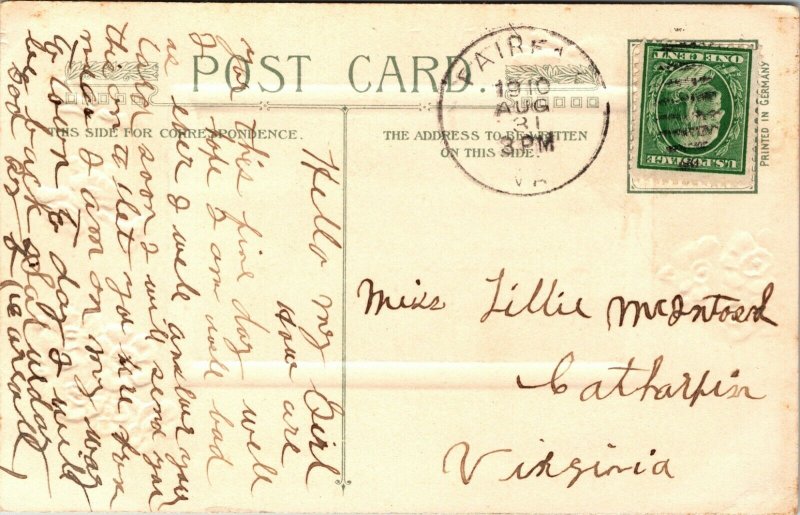 POST CARD.
THIS SIDE FOR CORRESPONDENCE.
THE ADDRESS TO BE WRITTEN
ON THIS SIDE.
FAIRF
1910
AUG
31
3 PM
VA
ONE CENT
U.S. POSTAGE
PRINTED IN GERMANY
Miss Lillie McIntosh
Catharpin
Virginia
Hello my Girl
How are
you this fine day well
I hope I am well bad
as ever I well answer your
card soon I will send you
this on to let you here from
me I am on my way
to town to day I will
be back Saturday
Good by